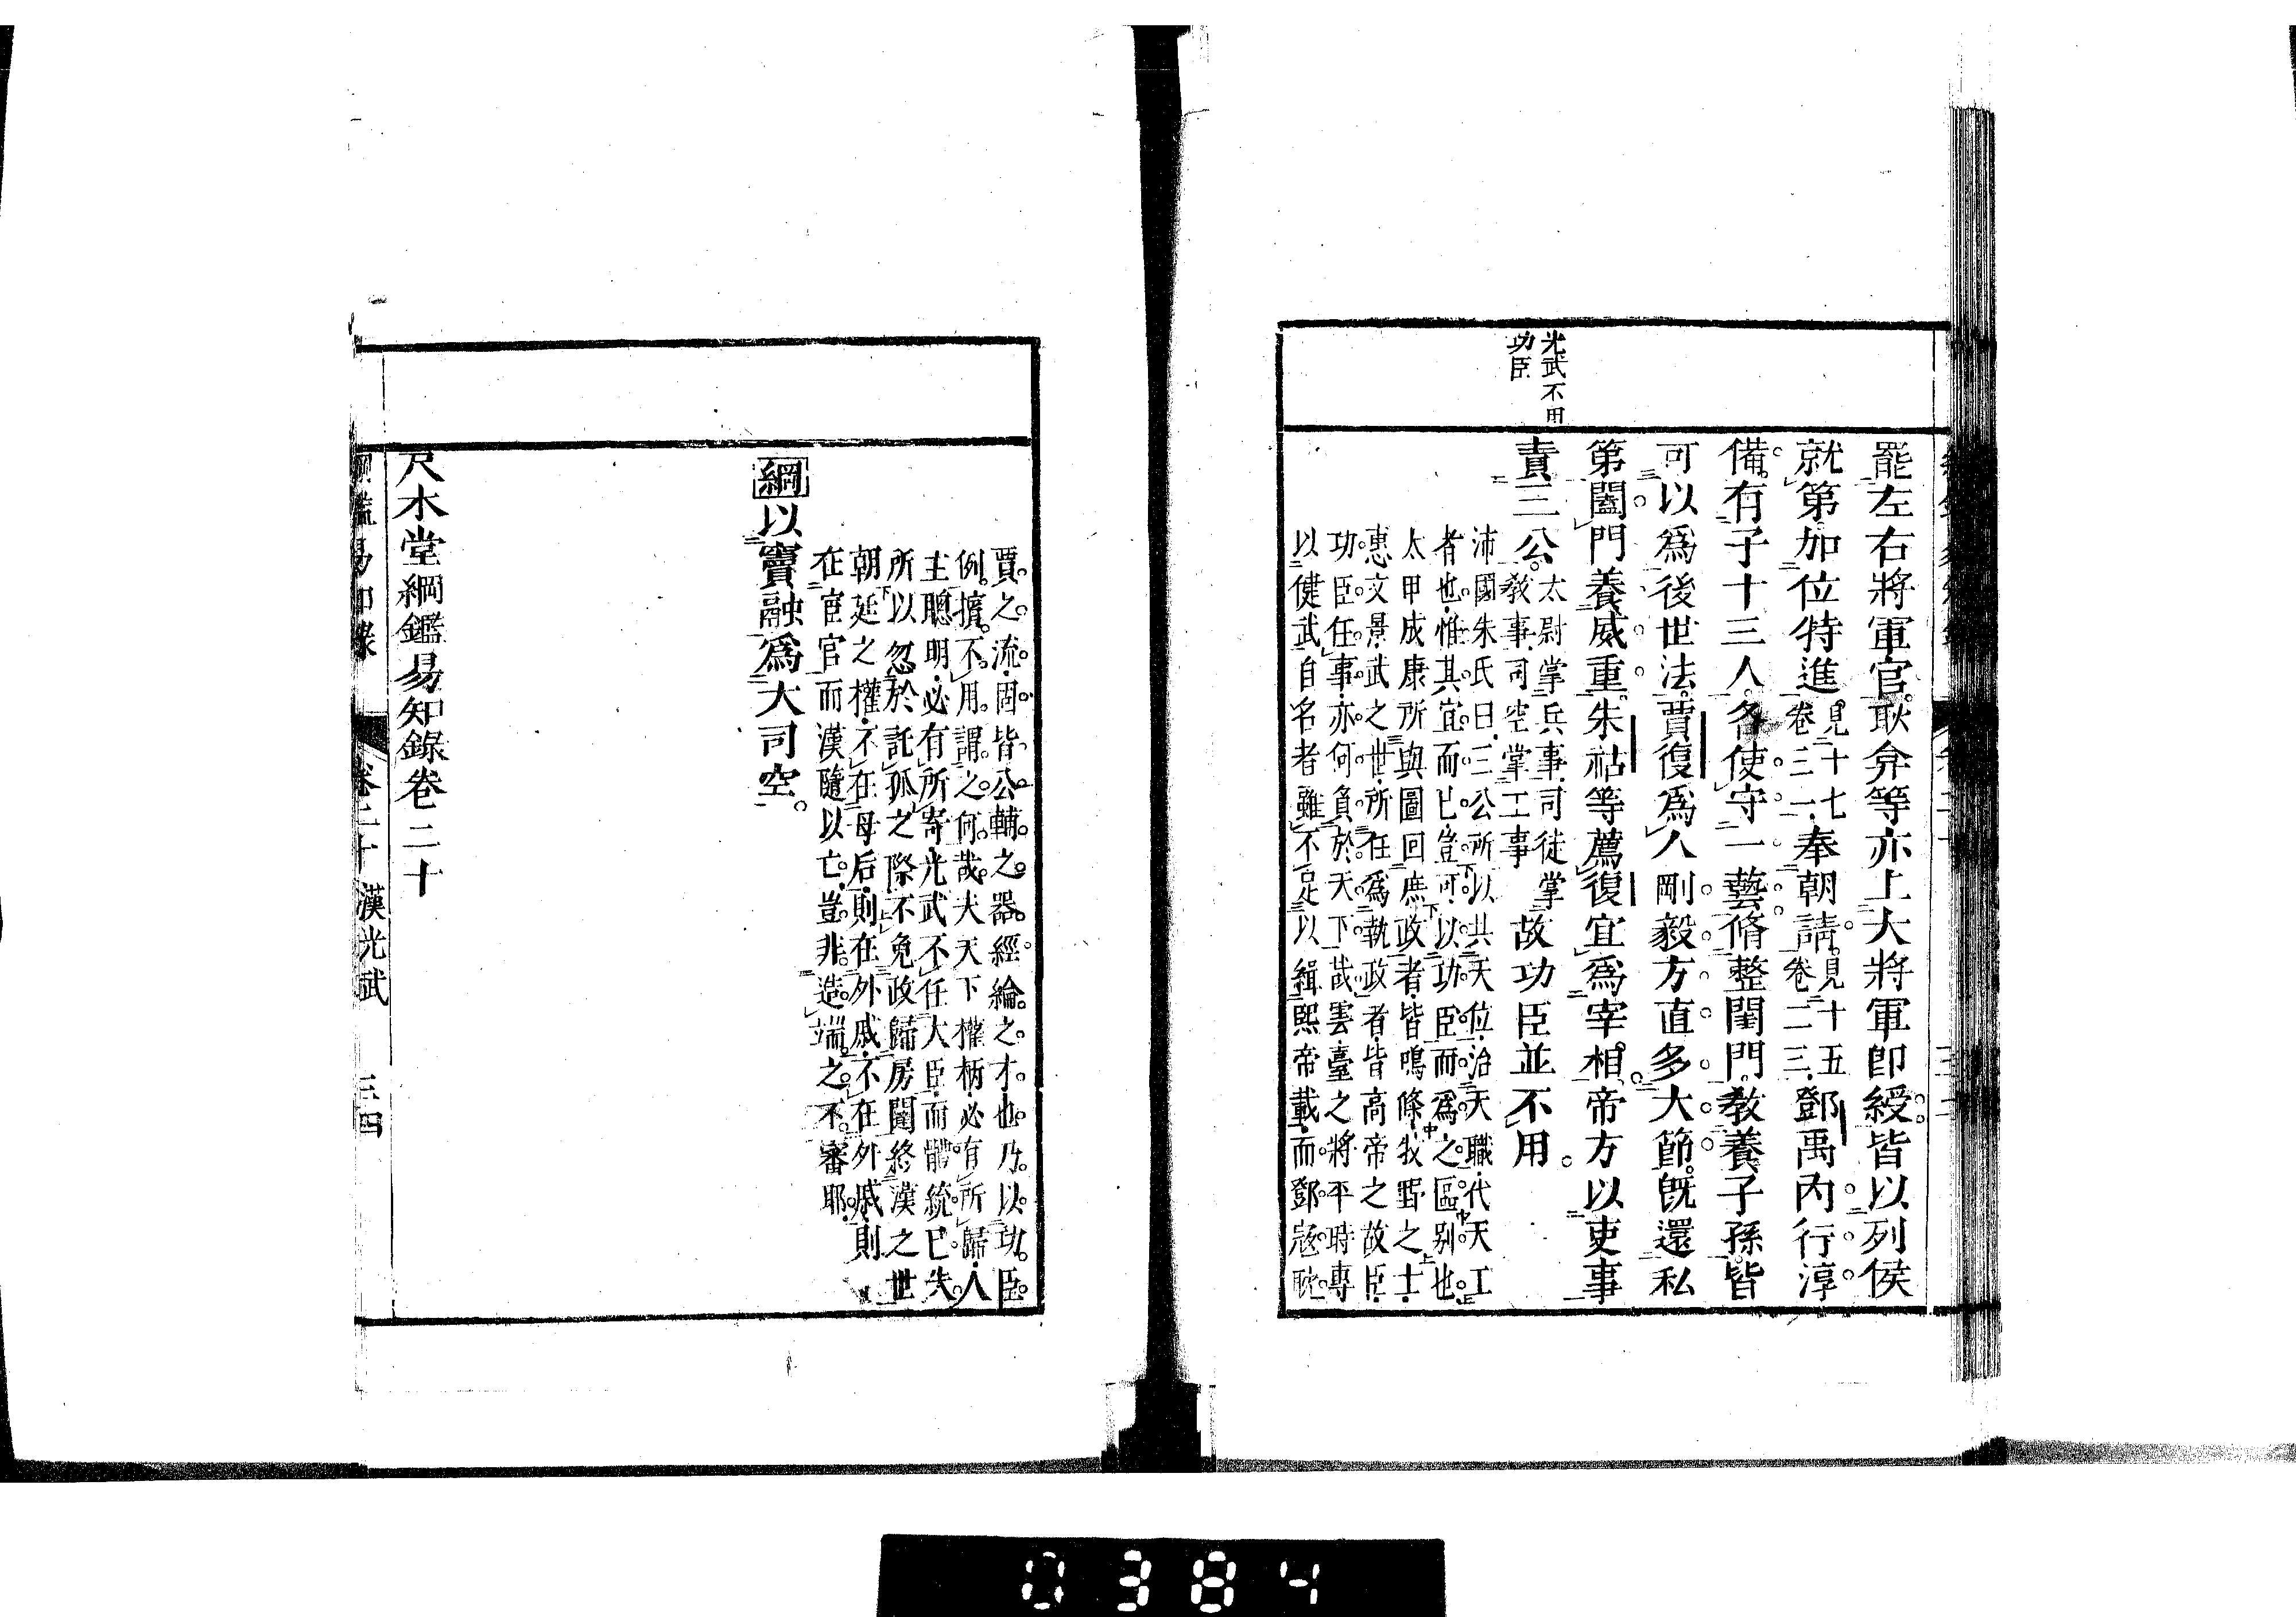 光武不用
功臣
罷左右將軍官。耿弇等亦上大將軍卽綬皆以列侯
就第。加位特進。見十七卷三一。奉朝請。見十五卷二三。鄧禹內行淳
備。有子十三人。各使守一藝。脩整閨門。敎養子孫。皆
可以爲後世法。賈復爲人剛毅方直。多大節。旣還私
第。闔門養威重。朱祜等薦復宜爲宰相。帝方以吏事
責三公。太尉掌兵事。司徒掌敎事。司空掌工事故功臣並不用。
沛國朱氏曰。三公所以共天位。治天職。代天工
者也。惟其宜而已。豈可以功臣而爲之區別也。
太甲成康所與圖回庶政者。皆鳴條牧野之士。
惠文景武之世。所任爲執政者。皆高帝之故臣。
功臣任事。亦何負於天下哉。雲臺之將。平時專
以健武自名者。雖不足以緝熙帝載。而鄧寇耿
賈之流。固皆公輔之器。經綸之才也。乃以功臣
例擯不用。謂之何哉。夫天下權柄。必有所歸。人
主聰明。必有所寄。光武不任大臣。而體統已失。
所以忽於託孤之際。不免政歸房闥。終漢之世
朝廷之權。不在母后。則在外戚。不在外戚。則
在宦官。而漢隨以亡。豈非造端之不審耶。
綱以竇融爲大司空。
尺木堂綱鑑易知錄卷二十
綱鑑易知錄 卷二十 漢光武 三四
0384